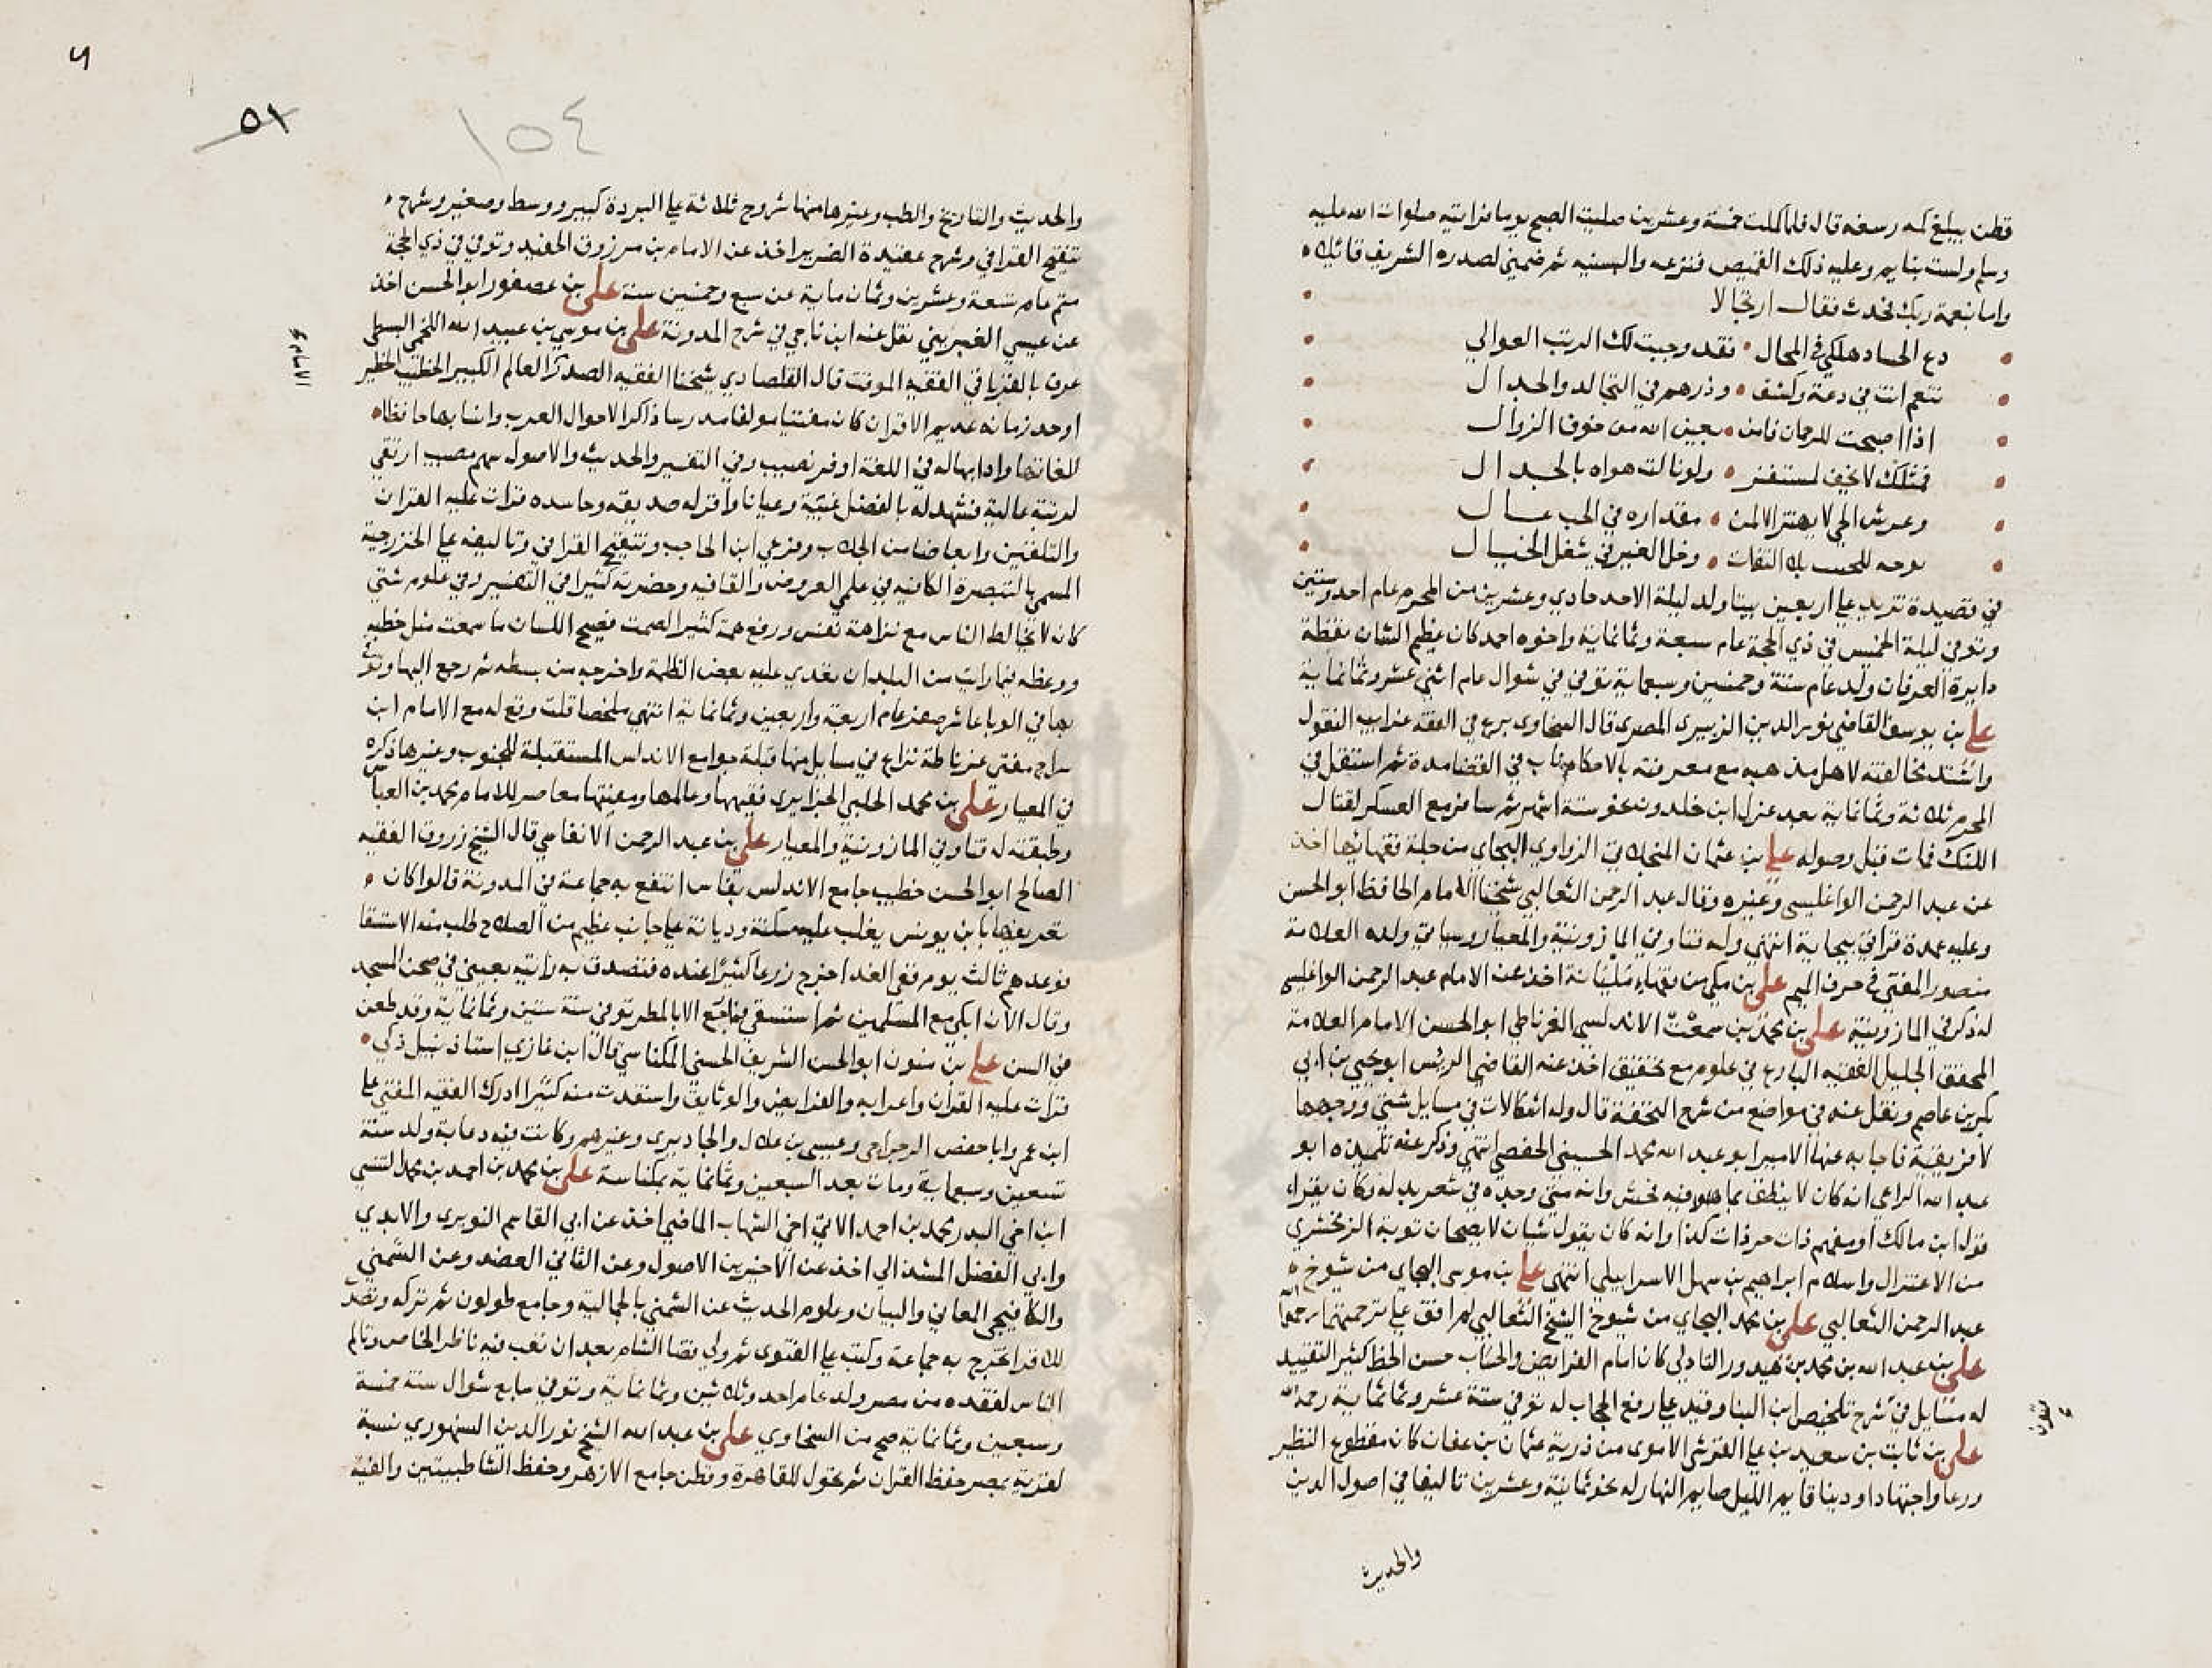 قطن يبلغ كمه رسغه قال فلما كملت خمسة وعشرين صليت الصبح يوما فرايته صلوات الله عليه
وسلم ولست بنايم وعليه ذلك القميص فنزعه والبسنيه ثم ضمني لصدره الشريف قائلا
واما بنعمة ربك فحدث فقال ارتجالا
دع الحساد هلكي في المحال • فقد وجبت لك الرتب العوالي
تنعم انت في دعة وكشف • وذرهم في التجالد والجدال
اذا اصبحت للرحمان فامن • بعين الله من خوف الزوال
فمثلك لا يخيف لمستفز • ولو نالت هواه بالجدال
وعرش الحي لا يهتز الا لمن • مقداره في الحب عال
بوجه للحب بلا التفات • وخل الغير في شغل الخيال
في قصيدة تزيد على اربعين بيتا ولد ليلة الاحد حادي وعشرين من المحرم عام احد وستين
وتوفي ليلة الخميس في ذي الحجة عام سبعة وثمانماية واخوه احمد كان عظيم الشان نقطة
دايرة العرفان ولد عام ستة وخمسين وسبعماية توفي في شوال عام اثني عشر وثمانماية
علي بن يوسف القاضي نور الدين الزبيري المصري قال السخاوي برع في الفقه غرايب النقول
واشتد مخالفته لاهل مذهبه مع معرفته بالاحكام ناب في القضا مدة ثم استقل في
المحرم ثلاثة وثمانماية بعد عزل ابن خلدون نحو ستة اشهر ثم سافر مع العسكر لقتال
اللنك فمات قبل وصوله علي بن عثمان المنجلاتي الزواوي البجاي من جلة فقهائها اخذ
عن عبد الرحمن الواغليسي وغيره وقال عبد الرحمن الثعالبي شيخنا الامام الحافظ ابو الحسن
وعليه عمدة قراتي ببجاية انتهى وله فتاوي في المازونية والمعيار وسياتي ولده العلامة
منصور المفتي في حرف الميم علي بن مكي من فقهاء مليانة اخذ عنه الامام عبد الرحمن الواغليسي
له ذكر في المازونية علي بن محمد بن سمعت الاندلسي الغرناطي ابو الحسن الامام العلامة
المحقق الجليل الفقيه البارع في علوم مع تحقيق اخذ عنه القاضي الرئيس ابو يحيي بن ابي
بكر بن عاصم ونقل عنه في مواضع من شرح التحفة قال وله اشكالات في مسايل شتي ووجهها
لافريقية فاجابه عنها الامير ابو عبد الله محمد الحسيني الحفصي انتهى وذكر عنه تلميذه ابو
عبد الله الراعي انه كان لا ينطق بما هو فيه فحش وانه متي وجده في شعر يد له وكان يقراء
قول ابن مالك او مفهم ذات حرفات كذا وانه كان يقول شيان لا يصحان توبة الزمخشري
من الاعتزال واسلام ابراهيم بن سهل الاسرايلي انتهى علي بن موسى البجاي من شيوخ
عبد الرحمن الثعالبي علي بن محمد البجاي من شيوخ الشيخ الثعالبي لم اقف علي ترجمتهما رحمهما الله
علي بن عبد الله بن محمد بن هيدور التادلي كان امام الفرايض والحساب حسن الخط كثير التقييد
له مسايل في شرح تلخيص ابن البنا وقيد علي رفع الحجاب له توفي ستة عشر وثمانماية رحمه الله
علي بن ثابت بن سعيد بن علي القرشي الاموي من ذرية عثمان بن عفان كان مقطوع النظير
ورعا واجتهادا ودينا قايم الليل صايم النهار له نحو ثمانية وعشرين تاليفا في اصول الدين
والحديث
٥١
١٥٤
والحديث والتاريخ والطب وغيرها منها شروح ثلاثة علي البردة كبير ووسط وصغير وشرح
تنقيح القرافي وشرح عقيدة الضرير اخذ عن الامام بن مرزوق الحفيد وتوفي في ذي الحجة
متم عام تسعة وعشرين وثمان ماية عن سبع وخمسين سنة علي بن عصفور ابو الحسن اخذ
عن عيسي الغبريني نقل عنه ابن ناجي في شرح المدونة علي بن موسي بن عبيد الله اللخمي البسطي
عرف بالقرباقي الفقيه الموقت قال القلصادي شيخنا الفقيه الصدر العالم الكبير الخطيب الخطير
اوحد زمانه عديم الاقران كان مفتيا مولفا مدرسا ذاكرا لاحوال العرب وانسابها حافظا
للغاتها وادابها له في اللغة اوفر نصيب وفي التفسير والحديث والاصول سهم مصيب ارتقي
لرتبة عالية فشهد له بالفضل غيبة وعيانا واقر له صديقه وحاسده قرات عليه القران
والتلقين وابعاضا من الجلاب وفرعي ابن الحاجب وتنقيح القرافي وتاليفه علي الخزرجية
المسمي بالتبصرة الكافيه في علمي العروض والقافيه وحضرته كثيرا في التفسير وفي علوم شتي
كان لا يخالط الناس مع نزاهة نفس ورفع همة كثير الصمت فصيح اللسان ما سمعت مثل خطبه
ووعظه فيما رايت من البلدان تعدي عليه بعض الظلمة واخرجه من بسطه ثم رجع اليها وتوفي
بها في الوبا عاشر صفر عام اربعة واربعين وثمانماية انتهى ملخصا قلت وقع له مع الامام ابن
سراج مفتي غرناطة نزاع في مسايل منها قبلة جوامع الاندلس المستقبلة للجنوب وغيرها ذكره
في المعيار علي بن محمد الحلبي الجزايري فقيهها وعالمها ومفتيها معاصر للامام محمد بن العباس
وطبقته له فتاوي في المازونية والمعيار علي بن عبد الرحمن الانفاسي قال الشيخ زروق الفقيه
الصالح ابو الحسن خطيب جامع الاندلس بفاس انتفع به جماعة في المدونة قالوا كان
تعريفها بابن يونس يغلب عليه سكتة وديانة علي جانب عظيم من الصلاح طلب منه الاستسقا
فوعدهم ثالث يوم ففي الغد اخرج زرعا كثيرا عنده فتصدق به رايته بعيني في صحن المسجد
وقال الان ابكي مع المسلمين ثم استسقي فما رجع الا بالمطر توفي سنة ستين وثمانماية وقد طعن
في السن علي بن منون ابو الحسن الشريف الحسني المكناسي قال ابن غازي استاذ نبيل ذكي
قرات عليه القران واعرابه والفرايض والوثايق واستفدت منه كثيرا ادرك الفقيه المفتي علي
ابن عمر وابا حفص الرجراجي وعيسي بن علال والجاديري وغيرهم وكانت فيه دعابة ولد سنة
تسعين وسبعماية ومات بعد السبعين وثمانماية بمكناسة علي بن محمد بن احمد بن محمد التنسي
ابن اخي البدر محمد بن احمد الاتي اخي الشهاب الماضي اخذ عن ابي القاسم النويري والابدي
وابي الفضل المشذالي اخذ عن الاخيرين الاصول وعن الثاني العضد وعن الشمني
والكافيجي المعاني والبيان وعلوم الحديث عن الشمني بالجمالية وجامع طولون ثم تركه وتصد
للاقرا تخرج به جماعة وكتب علي الفتوي ثم ولي قضا الشام بعد ان تعب فيه ناظر الخاص وتالم
الناس لفقده من مصر ولد عام احد وثلاثين وثمانماية وتوفي سابع شوال سنة خمسة
وسبعين وثمانماية صح من السخاوي علي بن عبد الله الشيخ نور الدين السنهوري نسبة
لقرية بمصر حفظ القران ثم تحول للقاهرة وقطن جامع الازهر وحفظ الشاطبيتين والفية